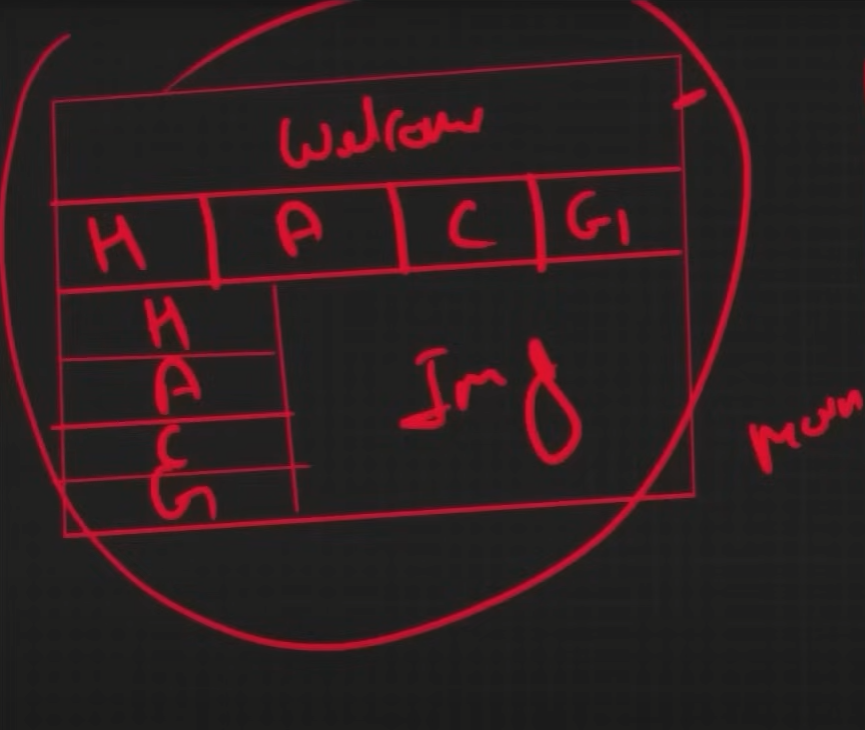 Welcome
H A C G
H
A
C
G
Img